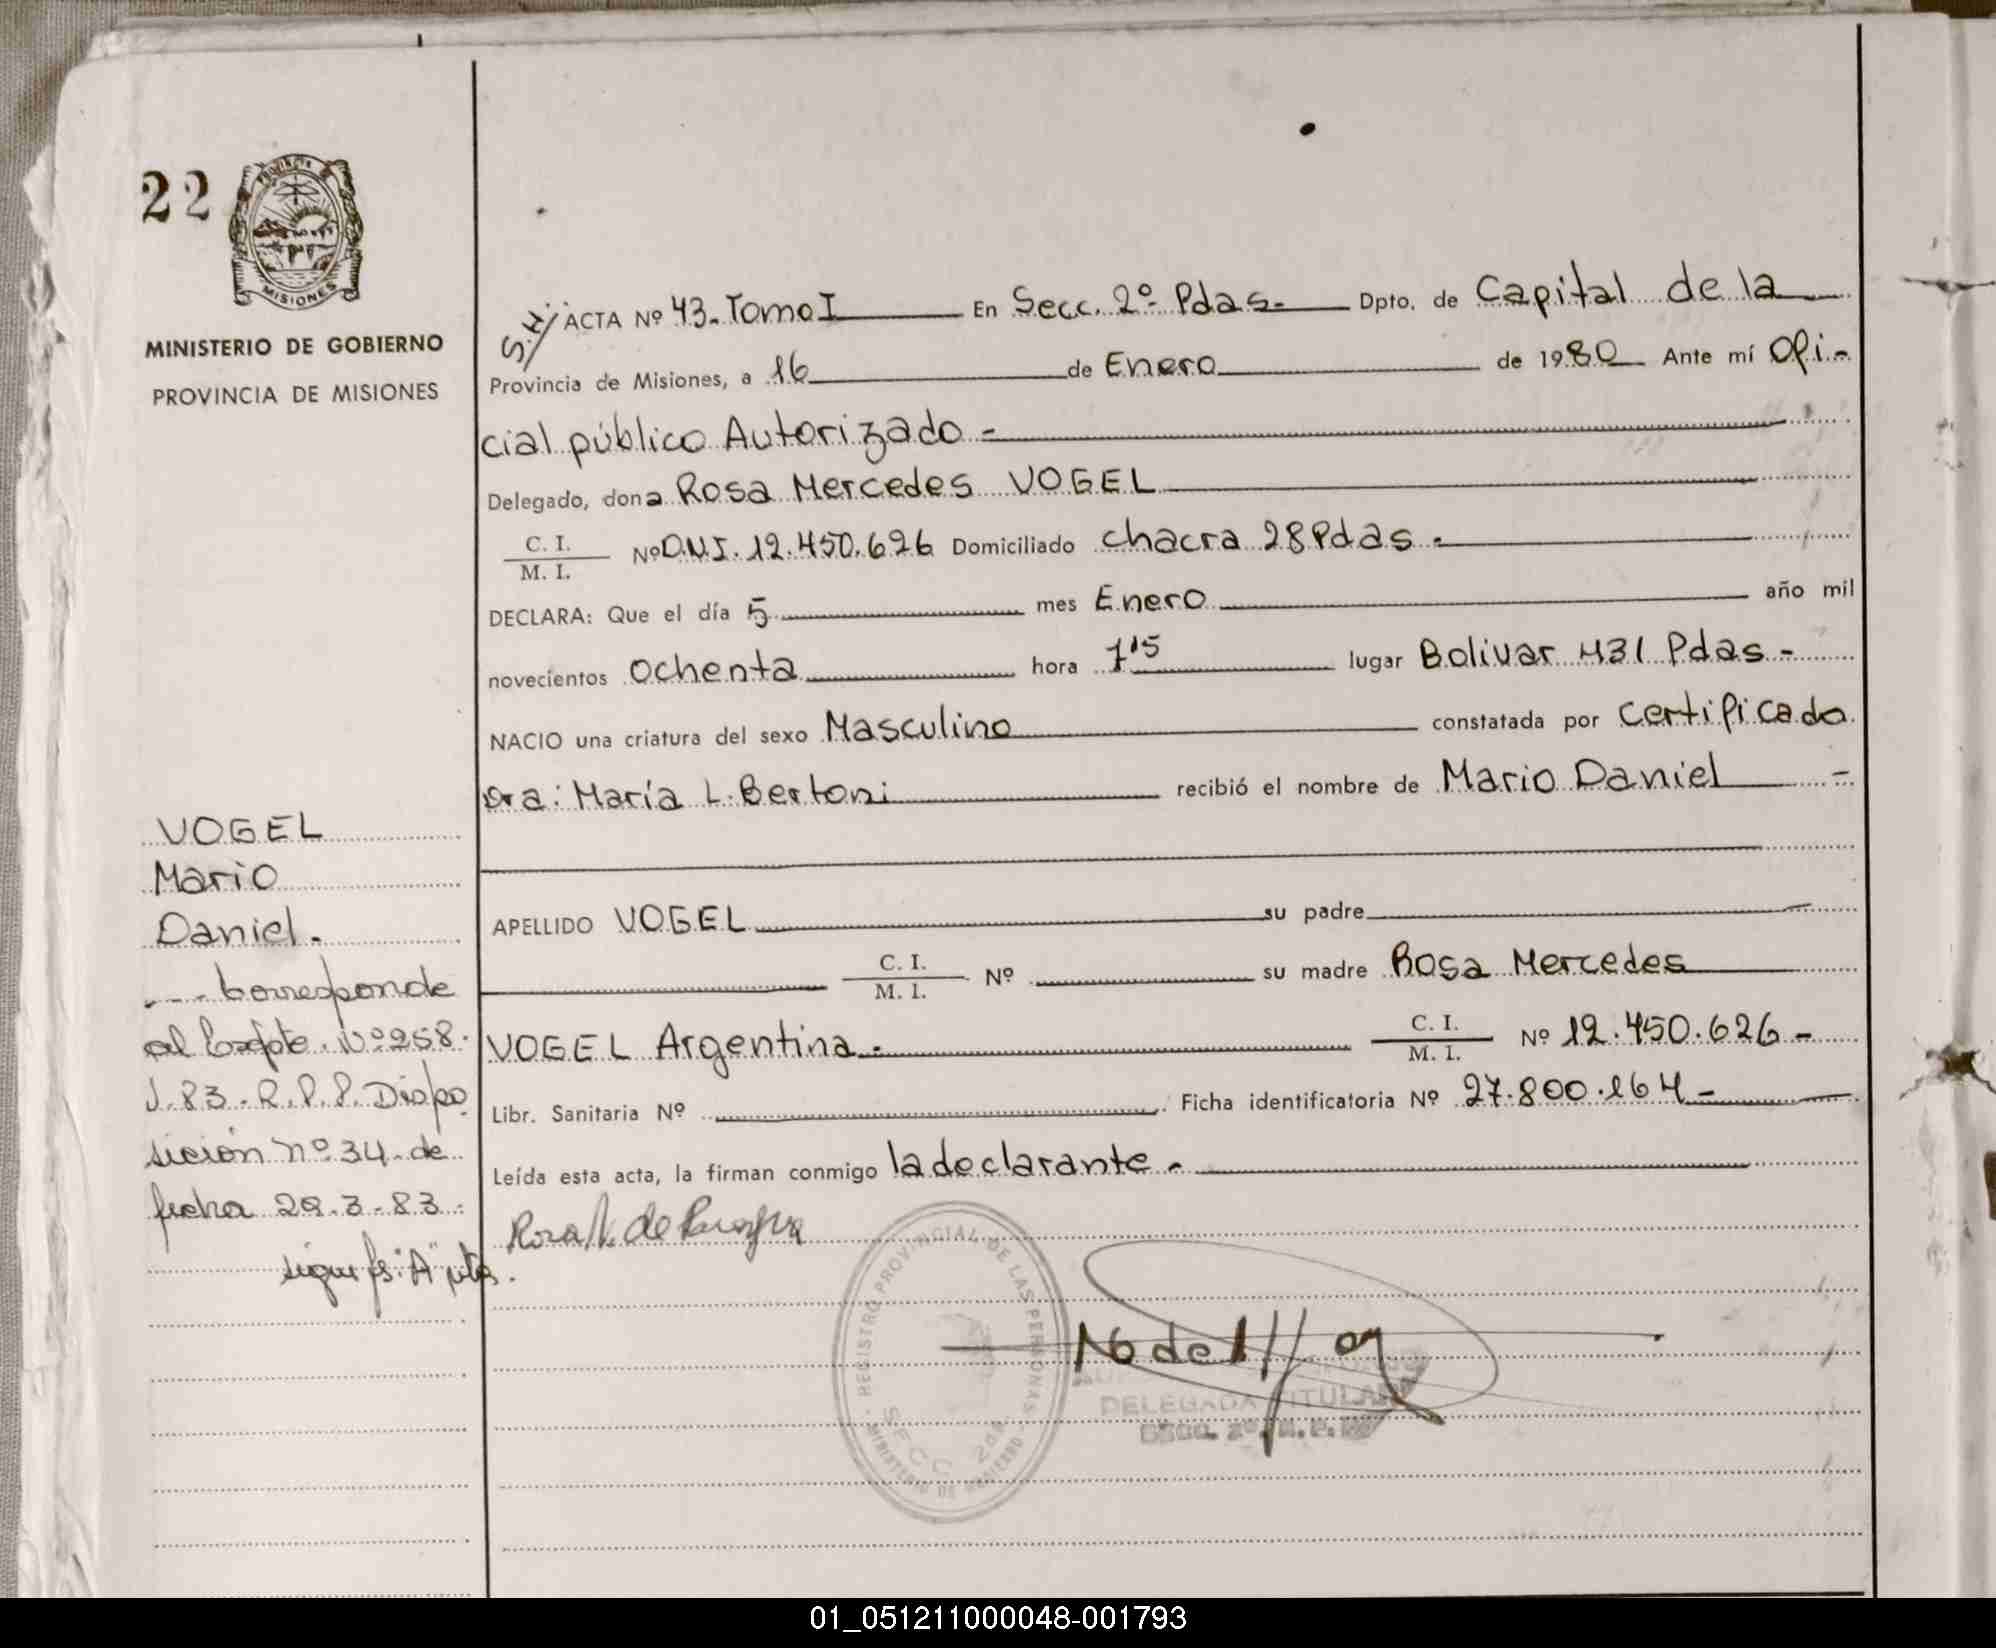 22
PROVINCIA
MISIONES
MINISTERIO DE GOBIERNO
PROVINCIA DE MISIONES
VOGEL
Mario
Daniel.
corresponde
al Expte. Nº 258.
J. 83. R.P.P. Dispo
sición nº 34. de
fecha 29.3.83.
sigue fs. "A" vta.
S.H/ ACTA Nº 43. Tomo I En Secc. 2º Pdas- Dpto. de Capital de la
Provincia de Misiones, a 16 de Enero de 1980 Ante mí Ofi-
cial público Autorizado -
Delegado, dona Rosa Mercedes VOGEL
C. I.
M. I. Nº D.N.I. 12.450.626 Domiciliado chacra 28 Pdas -
DECLARA: Que el día 5 mes Enero año mil
novecientos ochenta hora 1'15 lugar Bolivar 431 Pdas -
NACIO una criatura del sexo Masculino constatada por certificado
Dra: María L. Bertoni recibió el nombre de Mario Daniel -
APELLIDO VOGEL su padre
C. I.
M. I. Nº su madre Rosa Mercedes
VOGEL Argentina - C. I.
M. I. Nº 12.450.626 -
Libr. Sanitaria Nº Ficha identificatoria Nº 27.800.164 -
Leída esta acta, la firman conmigo la declarante -
Rosa V. de
REGISTRO PROVINCIAL DE LAS PERSONAS
MINISTERIO DE GOBIERNO
SECC 2da.
DELEGADA TITULAR
SECC. 2º. R. P. P.
01_051211000048-001793